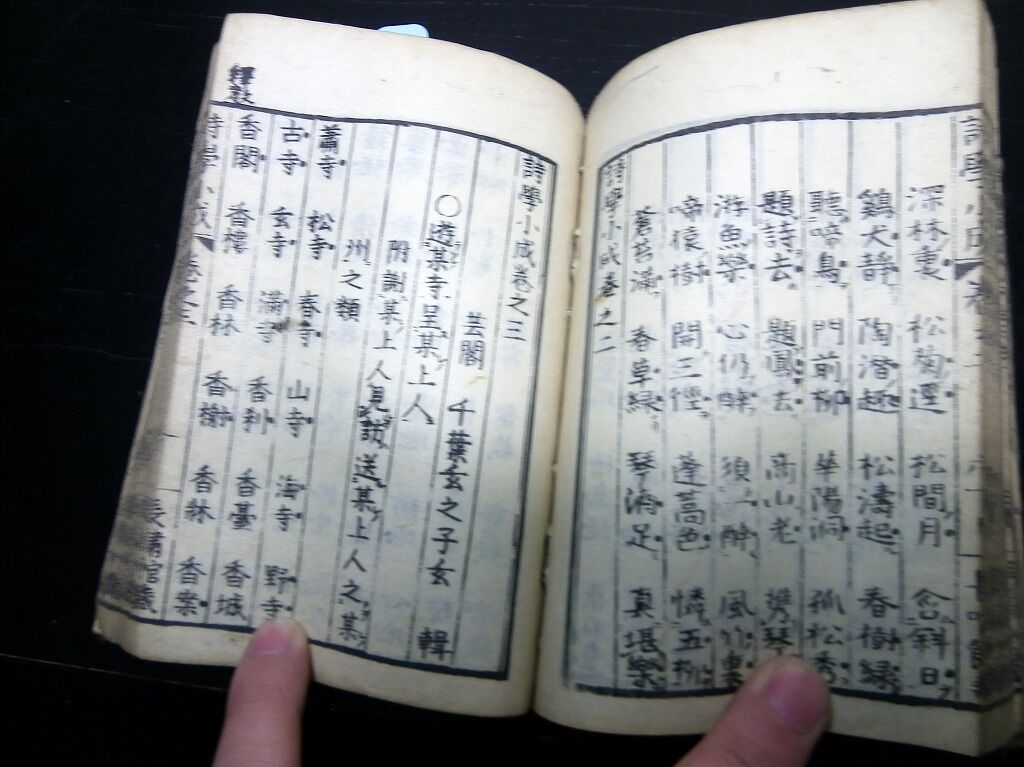 深林裏 松菊逕 松間月 含斜日
鷄犬靜 陶潛趣 松濤起 春樹緑
聽啼鳥 門前柳 華陽洞 孤松秀
題詩去 題鳳去 商山老 携琴
游魚樂 心仍醉 須一醉 風竹裏
啼猿樹 開三徑 蓬蒿色 憐五柳
蒼苔滿 春草緑 琴酒足 眞堪樂
詩學小成卷之二
詩學小成卷之三
芸閣 千葉玄之子玄 輯
○遊某寺呈某上人
附謝某上人見訪送某上人之某
州之類
蕭寺 松寺 春寺 山寺 海寺 野寺
古寺 玄寺 滿寺 香刹 香臺 香城
香閣 香樓 香林 香榭 香林 香案
釋教
詩學小成 卷之三